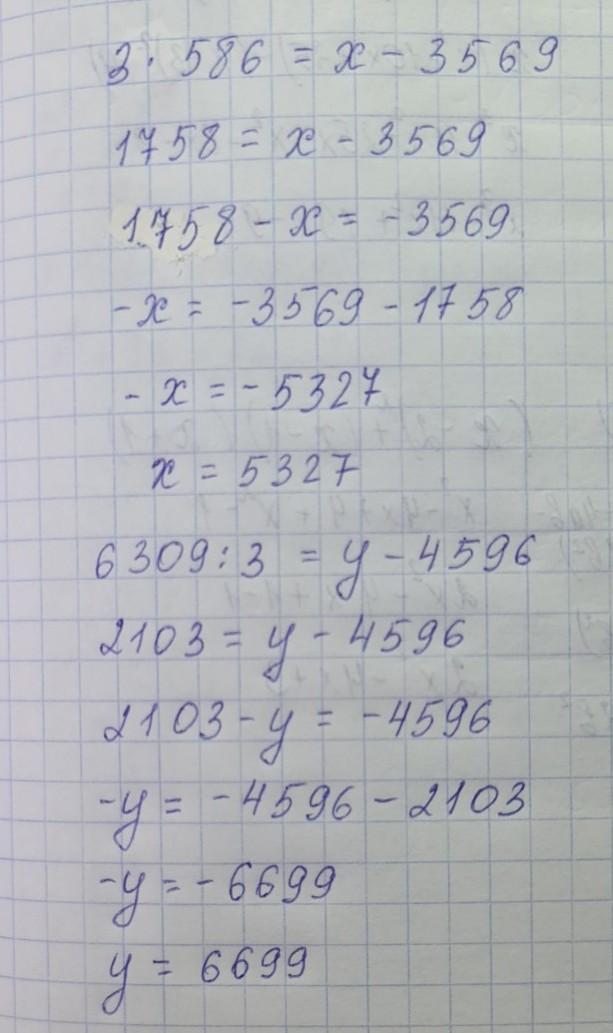 3 · 586 = x - 3569
1758 = x - 3569
1758 - x = -3569
-x = -3569 - 1758
- x = - 5327
x = 5327
6309 : 3 = y - 4596
2103 = y - 4596
2103 - y = -4596
-y = -4596 - 2103
-y = - 6699
y = 6699